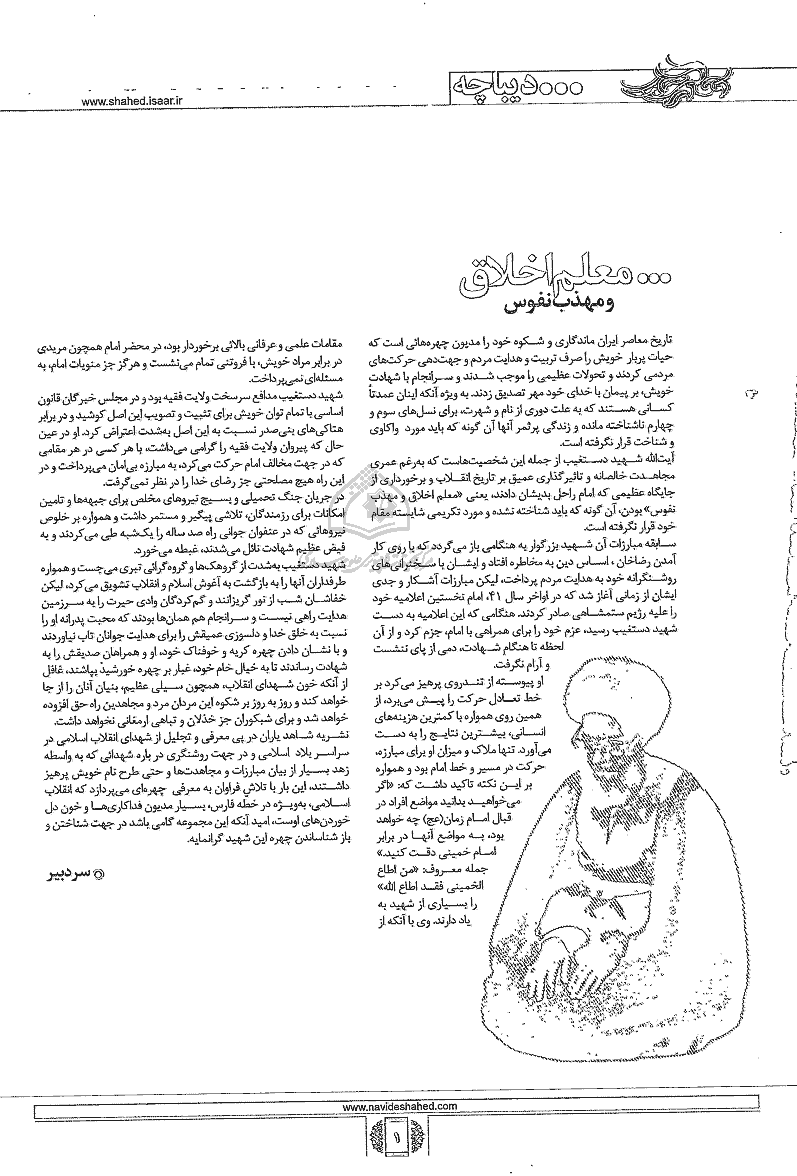 www.shahed.isaar.ir
...دیباچه
...معلم اخلاق
و مهذب نفوس
تاریخ معاصر ایران ماندگاری و شکوه خود را مدیون چهره‌هائی است که
حیات پربار خویش را صرف تربیت و هدایت مردم و جهت‌دهی حرکت‌های
مردمی کردند و تحولات عظیمی را موجب شدند و سرانجام با شهادت
خویش، بر پیمان با خدای خود مهر تصدیق زدند. به ویژه آنکه اینان عمدتاً
کسانی هستند که به علت دوری از نام و شهرت، برای نسل‌های سوم و
چهارم ناشناخته مانده و زندگی پرثمر آنها آن گونه که باید مورد واکاوی
و شناخت قرار نگرفته است.
آیت‌الله شهید دستغیب از جمله این شخصیت‌هاست که به‌رغم عمری
مجاهدت خالصانه و تاثیرگذاری عمیق بر تاریخ انقلاب و برخورداری از
جایگاه عظیمی که امام راحل بدیشان دادند، یعنی «معلم اخلاق و مهذب
نفوس» بودن، آن گونه که باید شناخته نشده و مورد تکریمی شایسته مقام
خود قرار نگرفته است.
سابقه مبارزات آن شهید بزرگوار به هنگامی باز می‌گردد که با روی کار
آمدن رضاخان، اساس دین به مخاطره افتاد و ایشان با سخنرانی‌های
روشنگرانه خود به هدایت مردم پرداخت، لیکن مبارزات آشکار و جدی
ایشان از زمانی آغاز شد که در اواخر سال ۴۱، امام نخستین اعلامیه خود
را علیه رژیم ستمشاهی صادر کردند. هنگامی که این اعلامیه به دست
شهید دستغیب رسید، عزم خود را برای همراهی با امام، جزم کرد و از آن
لحظه تا هنگام شهادت، دمی از پای ننشست
و آرام نگرفت.
او پیوسته از تندروی پرهیز می‌کرد بر
خط تعادل حرکت را پیش می‌برد، از
همین روی همواره با کمترین هزینه‌های
انسانی، بیشترین نتایج را به دست
می‌آورد. تنها ملاک و میزان او برای مبارزه،
حرکت در مسیر و خط امام بود و همواره
بر این نکته تاکید داشت که: «اگر
می‌خواهید بدانید مواضع افراد در
قبال امام زمان(عج) چه خواهد
بود، به مواضع آنها در برابر
امام خمینی دقت کنید.»
جمله معروف: «من اطاع
الخمینی فقد اطاع الله»
را بسیاری از شهید به
یاد دارند. وی با آنکه از
مقامات علمی و عرفانی بالائی برخوردار بود، در محضر امام همچون مریدی
در برابر مراد خویش، با فروتنی تمام می‌نشست و هرگز جز منویات امام، به
مسئله‌ای نمی‌پرداخت.
شهید دستغیب مدافع سرسخت ولایت فقیه بود و در مجلس خبرگان قانون
اساسی با تمام توان خویش برای تثبیت و تصویب این اصل کوشید و در برابر
هتاکی‌های بنی‌صدر نسبت به این اصل به‌شدت اعتراض کرد. او در عین
حال که پیروان ولایت فقیه را گرامی می‌داشت، با هر کسی در هر مقامی
که در جهت مخالف امام حرکت می‌کرد، به مبارزه بی‌امان می‌پرداخت و در
این راه هیچ مصلحتی جز رضای خدا را در نظر نمی‌گرفت.
در جریان جنگ تحمیلی و بسیج نیروهای مخلص برای جبهه‌ها و تامین
امکانات برای رزمندگان، تلاشی پیگیر و مستمر داشت و همواره بر خلوص
نیروهائی که در عنفوان جوانی راه صد ساله را یک‌شبه طی می‌کردند و به
فیض عظیم شهادت نائل می‌شدند، غبطه می‌خورد.
شهید دستغیب به‌شدت از گروهک‌ها و گروه‌گرائی تبری می‌جست و همواره
طرفداران آنها را به بازگشت به آغوش اسلام و انقلاب تشویق می‌کرد، لیکن
خفاشان شب از نور گریزانند و گم‌کردگان وادی حیرت را به سرزمین
هدایت راهی نیست و سرانجام هم همان‌ها بودند که محبت پدرانه او را
نسبت به خلق خدا و دلسوزی عمیقش را برای هدایت جوانان تاب نیاوردند
و با نشان دادن چهره کریه و خوفناک خود، او و همراهان صدیقش را به
شهادت رساندند تا به خیال خام خود، غبار بر چهره خورشید بپاشند، غافل
از آنکه خون شهدای انقلاب، همچون سیلی عظیم، بنیان آنان را از جا
خواهد کند و روز به روز بر شکوه این مردان مرد و مجاهدین راه حق افزوده
خواهد شد و برای شبکوران جز خذلان و تباهی ارمغانی نخواهد داشت.
نشریه شاهد یاران در پی معرفی و تجلیل از شهدای انقلاب اسلامی در
سراسر بلاد اسلامی و در جهت روشنگری در باره شهدائی که به واسطه
زهد بسیار از بیان مبارزات و مجاهدت‌ها و حتی طرح نام خویش پرهیز
داشتند، این بار با تلاش فراوان به معرفی چهره‌ای می‌پردازد که انقلاب
اسلامی، به‌ویژه در خطه فارس، بسیار مدیون فداکاری‌ها و خون دل
خوردن‌های اوست، امید آنکه این مجموعه گامی باشد در جهت شناختن و
باز شناساندن چهره این شهید گرانمایه.
سردبیر
www.navideshahed.com
۱